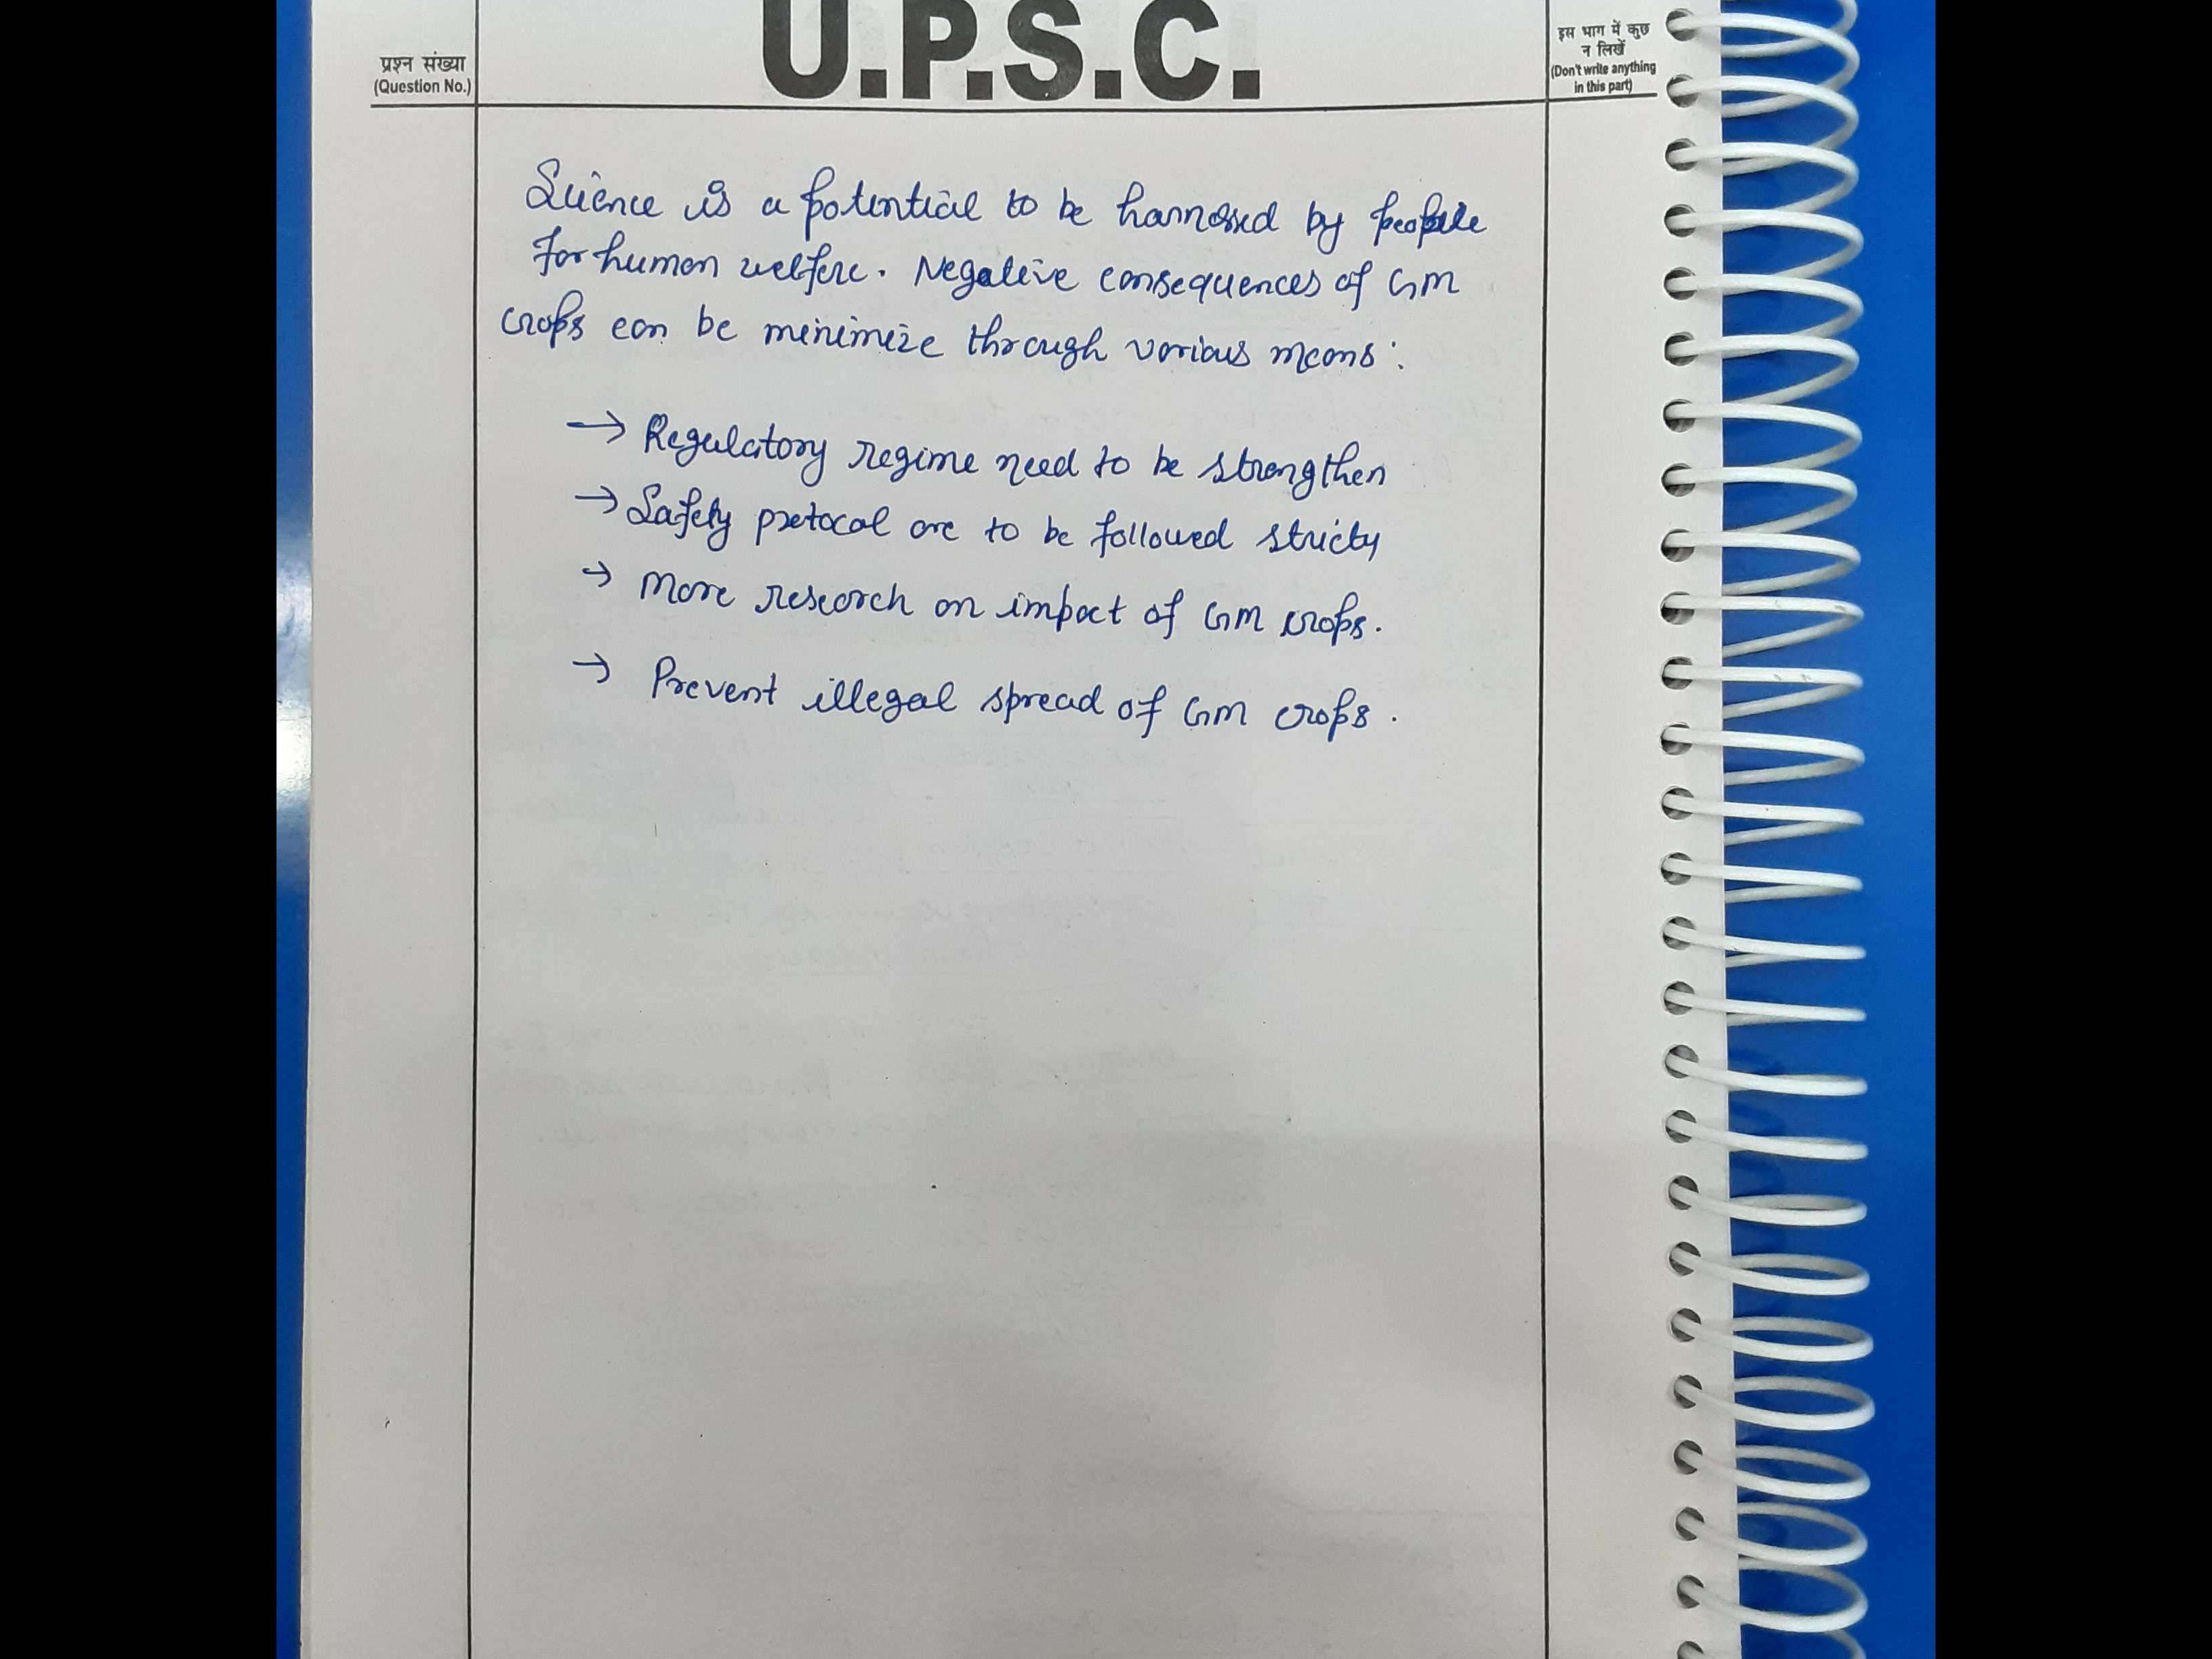 U.P.S.C.
प्रश्न संख्या
(Question No.)
इस भाग में कुछ
न लिखें
(Don't write anything
in this part)
Science is a potential to be harnessed by people
for human welfere. Negative consequences of GM
crops can be minimize through various means:
→ Regulatory regime need to be strengthen
→ Safety protocal are to be followed stricty
→ More research on impact of GM crops.
→ Prevent illegal spread of GM crops.